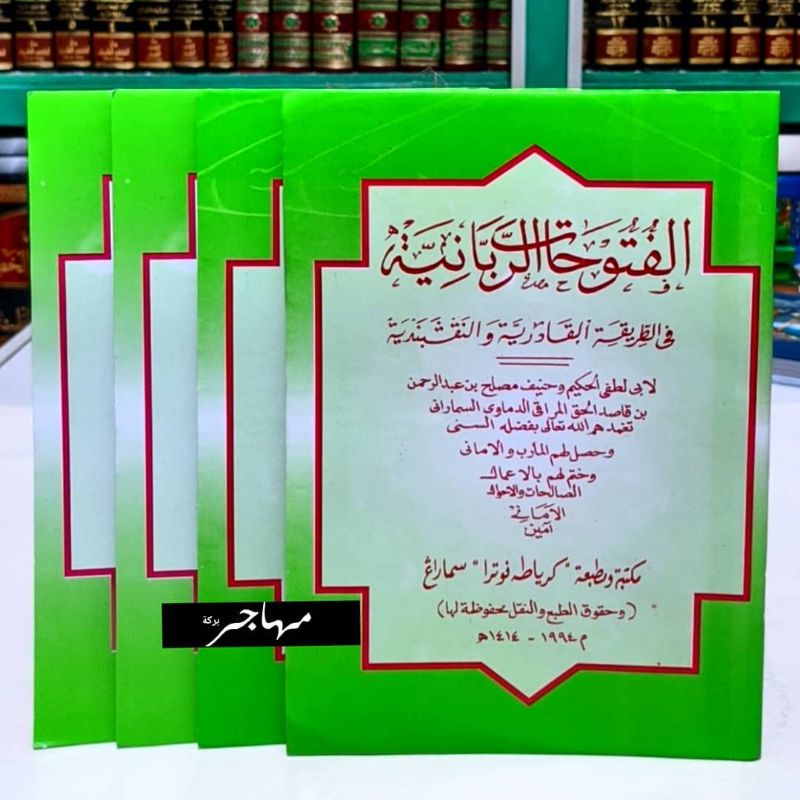 الفُتُوحَاتُ الرَّبَّانِيَّة
فى الطريقة القادريَّة والنقشبندية
لابى لطفى الحكيم وحنيف مصلح بن عبد الرحمن
بن قاصد الحق المراقى الدماوى السمارانى
تغمدهم الله تعالى بفضله السنى
وحصل لهم المأرب والامانى
وختم لهم بالاعمال
الصالحات والاحوال
الامَانِى
آمين
مكتبة ومطبعة "كرياطه فوترا" سماراڠ
(وحقوق الطبع والنقل محفوظة لها)
١٩٩٤م - ١٤١٤ﻫ
مهاجر بركة